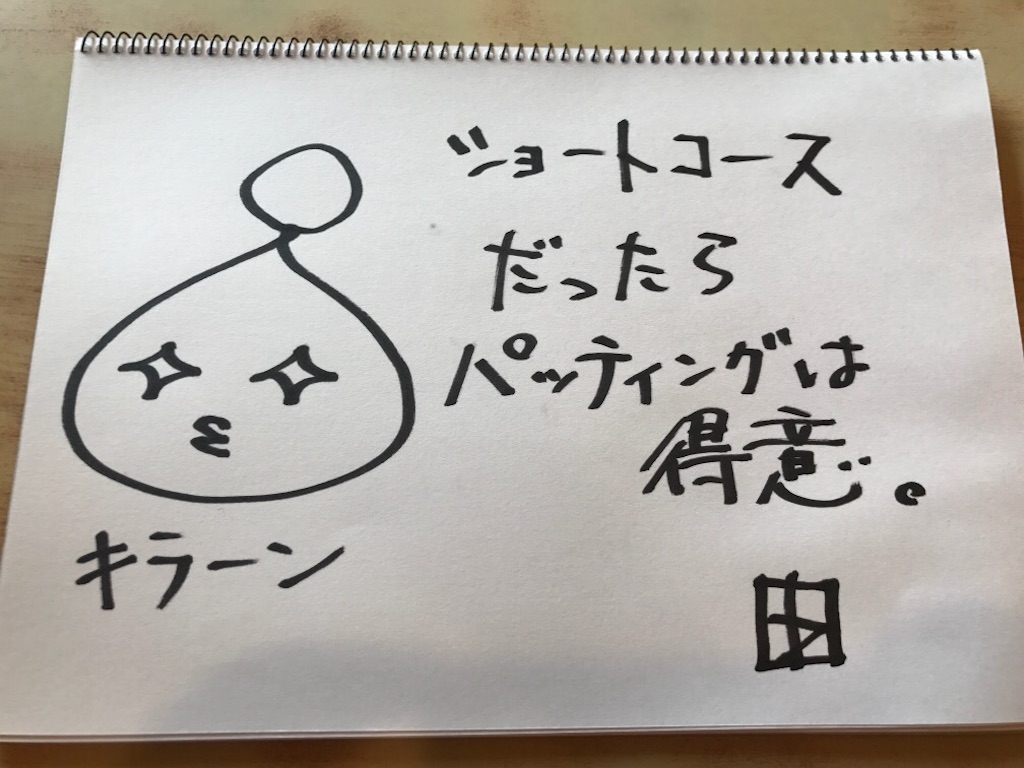 ショートコース
だったら
パッティングは
得意。
キラーン